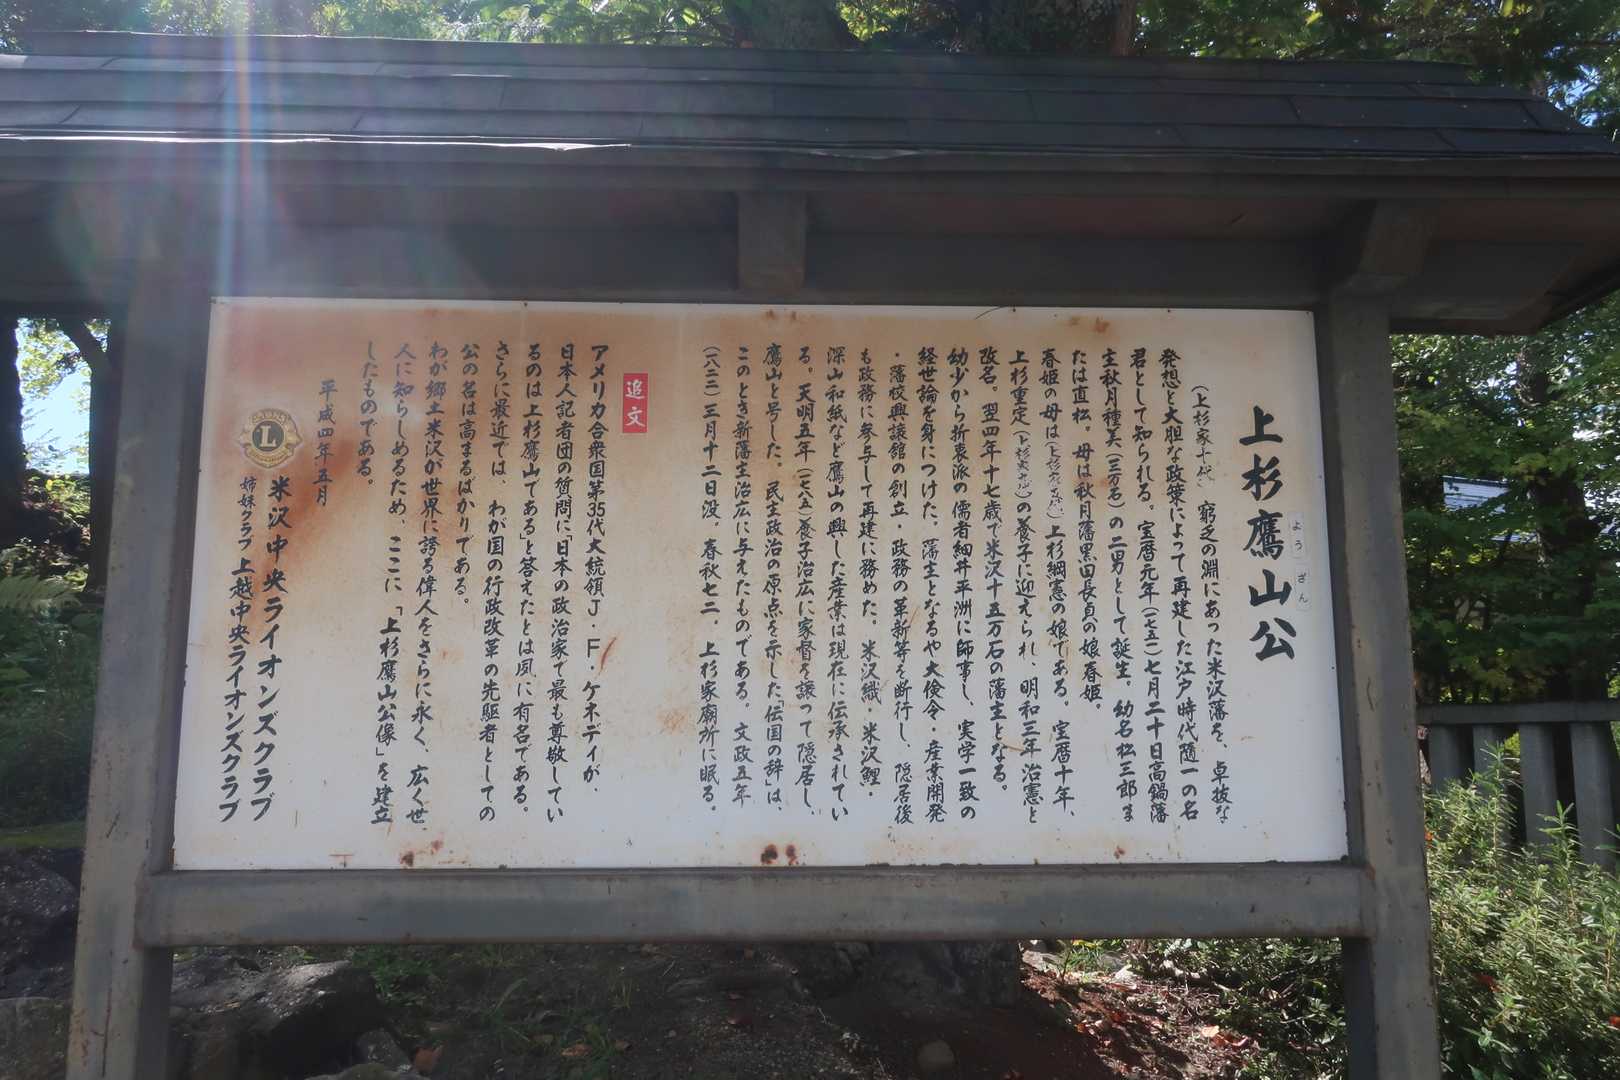 上杉鷹山公
ようざん
(上杉家十代) 窮乏の淵にあった米沢藩を、卓抜な
発想と大胆な政策によって再建した江戸時代随一の名
君として知られる。宝暦元年(一七五一)七月二十日高鍋藩
主秋月種美(三万石)の二男として誕生。幼名松三郎ま
たは直松。母は秋月藩黒田長貞の娘春姫。
春姫の母は上杉綱憲の娘である。宝暦十年、
上杉重定の養子に迎えられ、明和三年治憲と
改名。翌四年十七歳で米沢十五万石の藩主となる。
幼少から折衷派の儒者細井平洲に師事し、実学一致の
経世論を身につけた。藩主となるや大倹令・産業開発
・藩校興譲館の創立・政務の革新等を断行し、隠居後
も政務に参与して再建に務めた。米沢織・米沢鯉・
深山和紙など鷹山の興した産業は現在に伝承されてい
る。天明五年(一七八五)養子治広に家督を譲って隠居し、
鷹山と号した。民主政治の原点を示した「伝国の辞」は、
このとき新藩主治広に与えたものである。文政五年
(一八二二)三月十二日没。春秋七二。上杉家廟所に眠る。
追文
アメリカ合衆国第35代大統領J・F・ケネディが、
日本人記者団の質問に「日本の政治家で最も尊敬してい
るのは上杉鷹山である」と答えたとは夙に有名である。
さらに最近では、わが国の行政改革の先駆者としての
公の名は高まるばかりである。
わが郷土米沢が世界に誇る偉人をさらに永く、広く世
人に知らしめるため、ここに「上杉鷹山公像」を建立
したものである。
平成四年五月
L
米沢中央ライオンズクラブ
姉妹クラブ 上越中央ライオンズクラブ